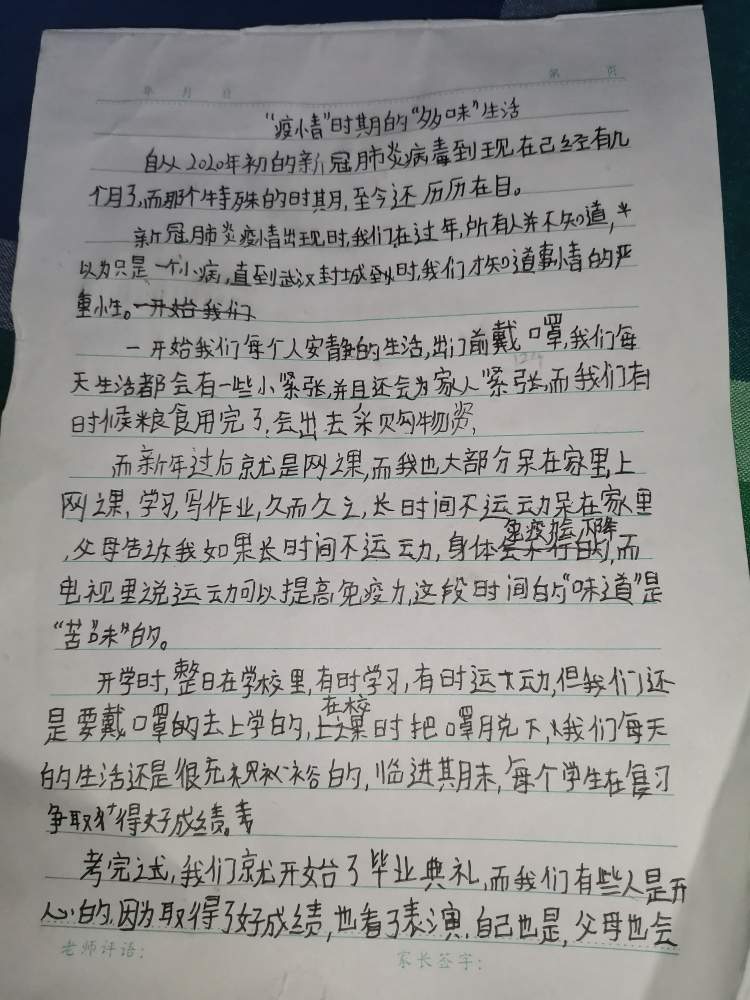 年 月 日 第 页
“疫情”时期的“多味”生活
自从2020年初的新冠肺炎病毒到现在已经有几
个月了,而那个特殊的时期,至今还历历在目。
新冠肺炎疫情出现时,我们在过年,所有人并不知道,
以为只是一个小病,直到武汉封城时,我们才知道事情的严
重性。一开始我们
一开始我们每个人安静的生活,出门前戴口罩,我们每
天生活都会有一些小紧张,并且还会为家人紧张,而我们有
时候粮食用完了,会出去采购物资,
而新年过后就是网课,而我也大部分呆在家里上
网课,学习,写作业,久而久之,长时间不运动呆在家里
免疫力会下降
,父母告诉我如果长时间不运动,身体会不行的,而
电视里说运动可以提高免疫力,这段时间的“味道”是
“苦”味”的。
开学时,整日在学校里,有时学习,有时运动,但我们还
在校
是要戴口罩的去上学的,上课时把口罩脱下,我们每天
的生活还是很充裕的,临进期末,每个学生在复习
争取得好成绩。
考完之试,我们就开始了毕业典礼,而我们有些人是开
心的,因为取得了好成绩,也看了表演,自己也是,父母也会
老师评语: 家长签字: